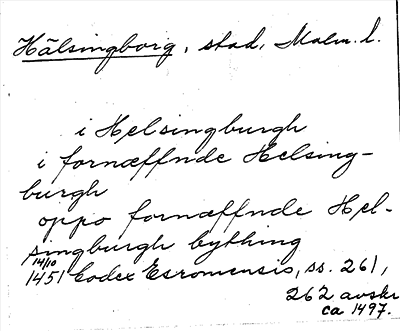 Hälsingborg, stad, Malm. l.
i Helsingburgh
i fornæffnde Helsing-
burgh
oppo fornæffnde Hel-
singburgh bything
14/10
1451 Codex Esromensis, ss. 261,
262 avskr
ca 1497.